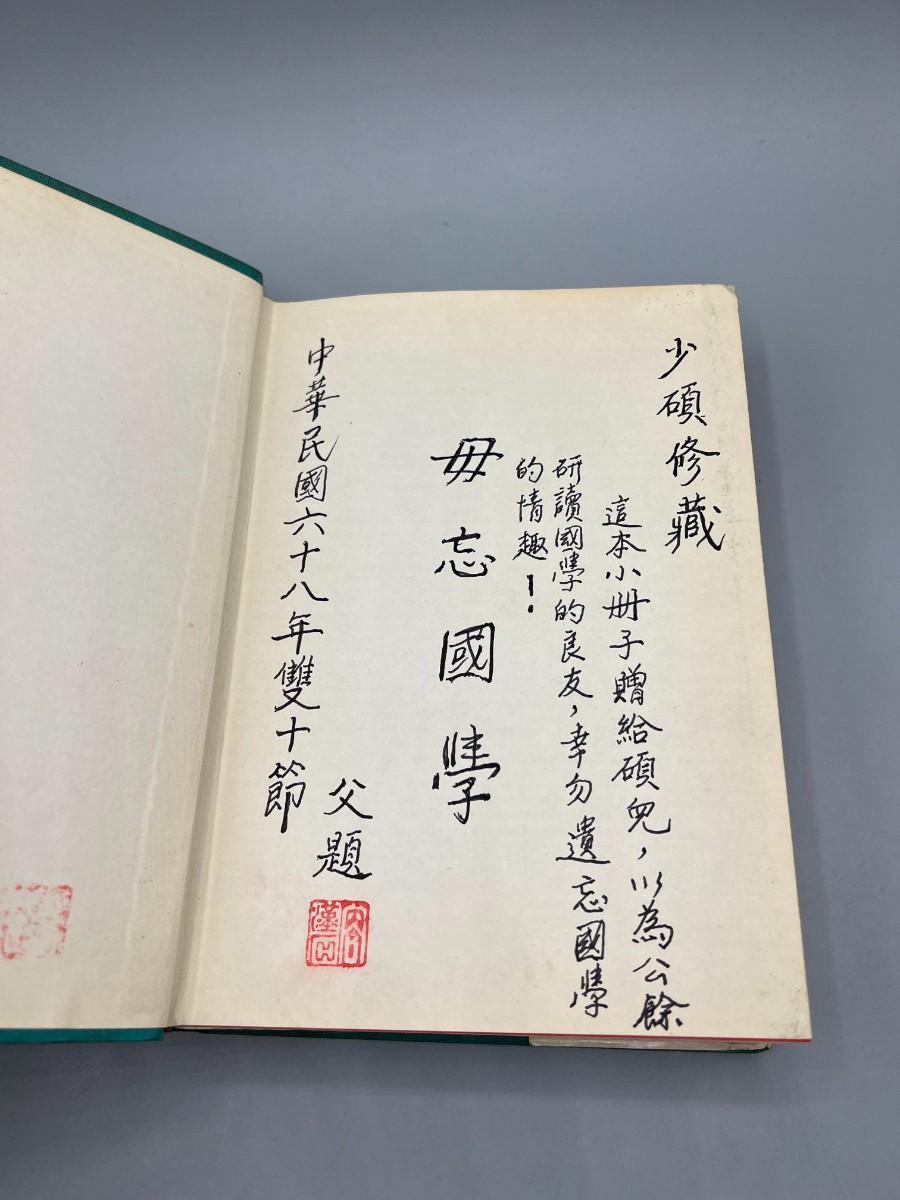 少碩修藏
這本小冊子贈給碩兒，以為公餘
研讀國學的良友，幸勿遺忘國學
的情趣！
毋忘國學
中華民國六十八年雙十節
父題